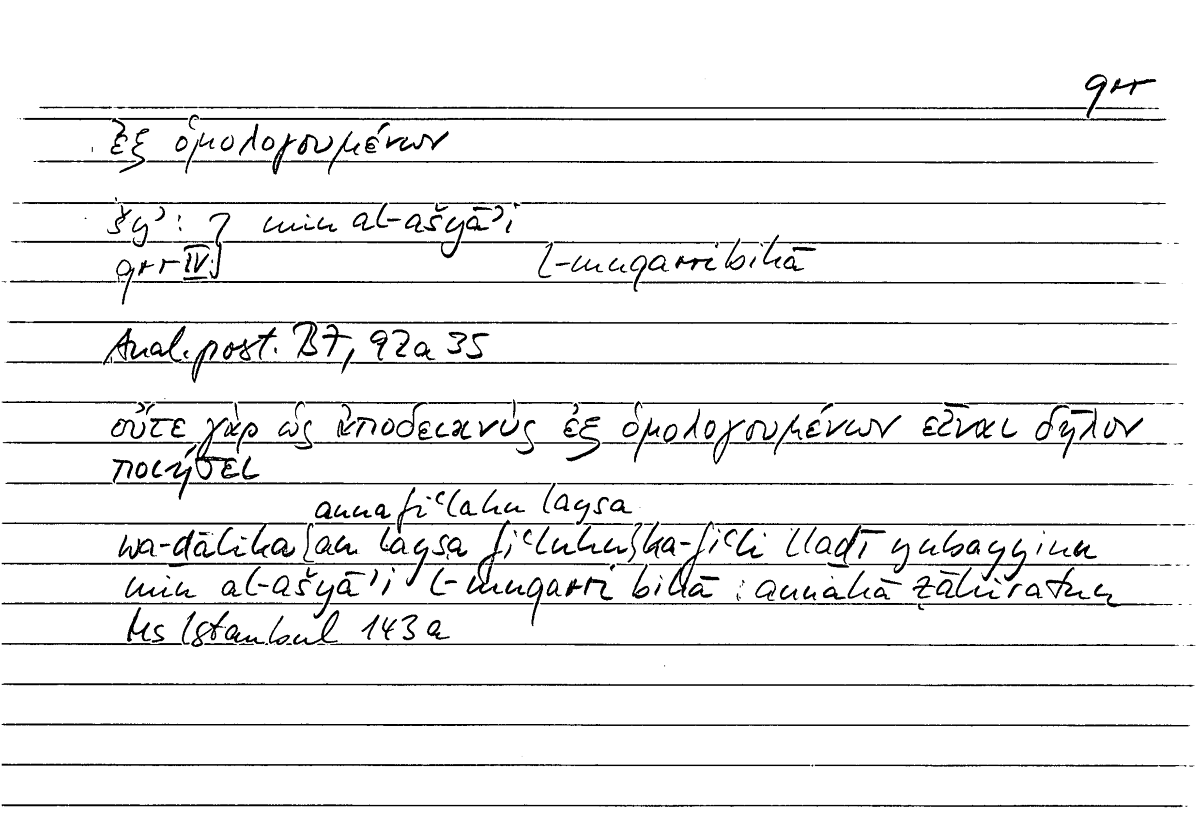 qrr
ἐξ ὁμολογουμένων
šyʾ: ] min al-ašyāʾi
qrr IV:] l-muqarri bihā
Anal. post. B7, 92a 35
οὔτε γὰρ ὡς ἀποδεικνὺς ἐξ ὁμολογουμένων εἶναι δῆλον
ποιήσει
anna fiʿlahu laysa
wa-ḏālika [an laysa fiʿluhu] ka-fiʿli llaḏī yubayyinu
min al-ašyāʾi l-muqarri bihā : annahā ẓāhiratun
Ms Istanbul 143a